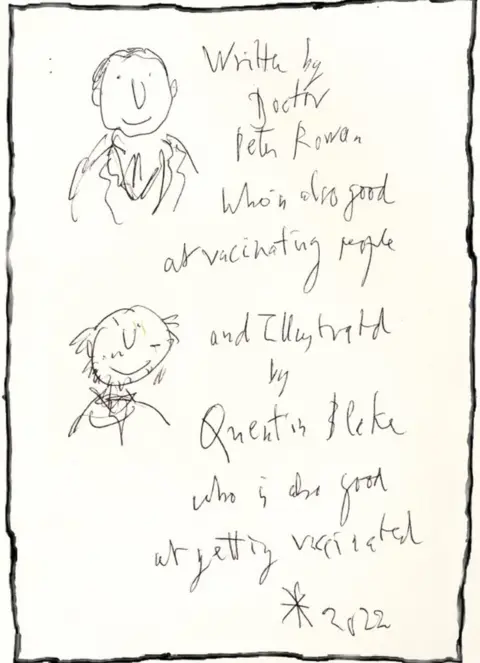 Written by
Doctor
Peter Rowan
Who is also good
at vaccinating people
and Illustrated
by
Quentin Blake
who is also good
at getting vaccinated
* 2022